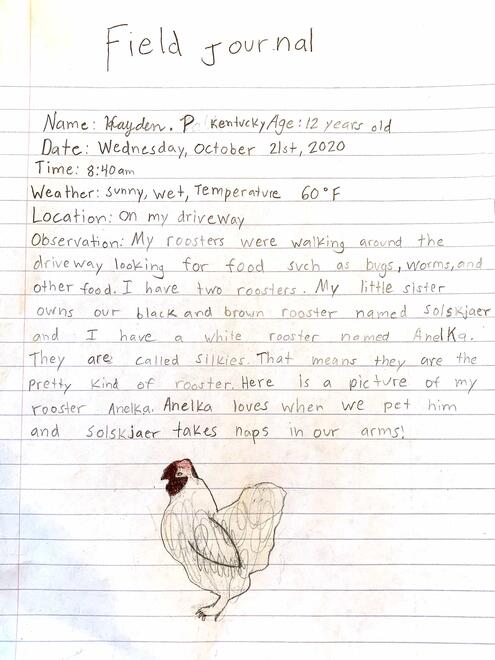 Field Journal
Name: Hayden. P Kentucky Age: 12 years old
Date: Wednesday, October 21st, 2020
Time: 8:40am
Weather: sunny, wet, Temperature 60°F
Location: On my driveway
Observation: My roosters were walking around the
driveway looking for food such as bugs, worms, and
other food. I have two roosters. My little sister
owns our black and brown rooster named Solskjaer
and I have a white rooster named Anelka.
They are called silkies. That means they are the
pretty kind of rooster. Here is a picture of my
rooster Anelka. Anelka loves when we pet him
and Solskjaer takes naps in our arms!